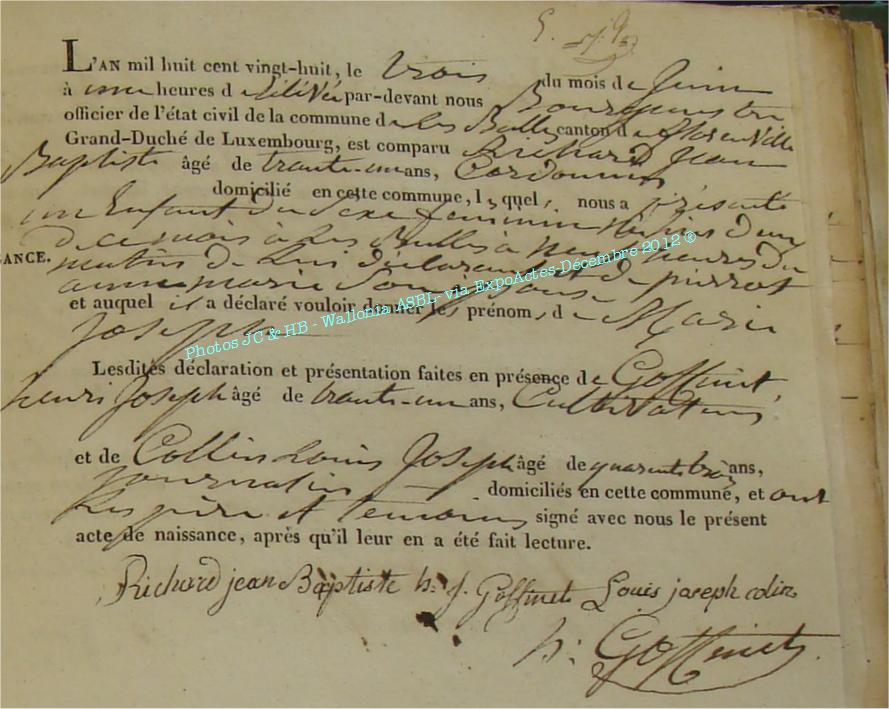 L'AN mil huit cent vingt-huit, le trois du mois de Juin
à une heures de Rélévée par-devant nous Bourgmestre
officier de l'état civil de la commune de Les Bulles canton de florenville
Grand-Duché de Luxembourg, est comparu Richard Jean
Baptiste âgé de trante-un ans, Cordonnier
domicilié en cette commune, lequel, nous a présenté
un Enfant du Sexe féminin
de ce mois à Les Bulles à neuf heures du
ANCE. matin de Lui déclarant et de pierrot
anne marie Son Epouse
et auquel il a déclaré vouloir donner les prénoms de Marie
Joseph
Photos JC & HB - Wallonia ASBL- via ExpoActes-Décembre 2012 ®
Lesdites déclaration et présentation faites en présence de Goffinet
henri Joseph âgé de trante-un ans, Cultivateur
et de Collin Louis Joseph âgé de quarente trois ans,
Journalier domiciliés en cette commune, et ont
Les père et temoins signé avec nous le présent
acte de naissance, après qu'il leur en a été fait lecture.
Richard jean Baptiste h: j. Goffinet Louis joseph colin
h: Goffinet